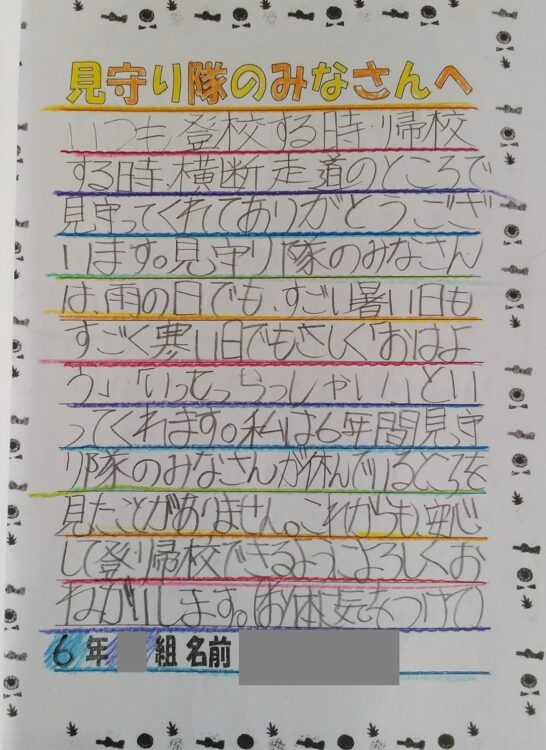 見守り隊のみなさんへ
いつも登校する時、帰校
する時、横断走道のところで
見守ってくれてありがとうござ
います。見守り隊のみなさん
は、雨の日でも、すごい暑い日も
すごく寒い日でもさしく「おはよ
う」「いってらっしゃい」とい
ってくれます。私は6年間見守
り隊のみなさんが休んでいるところを
見たことがありません。これからも安心
して登り帰校できるようによろしくお
ねがいします。(お体気をつけて)
6年 組 名前